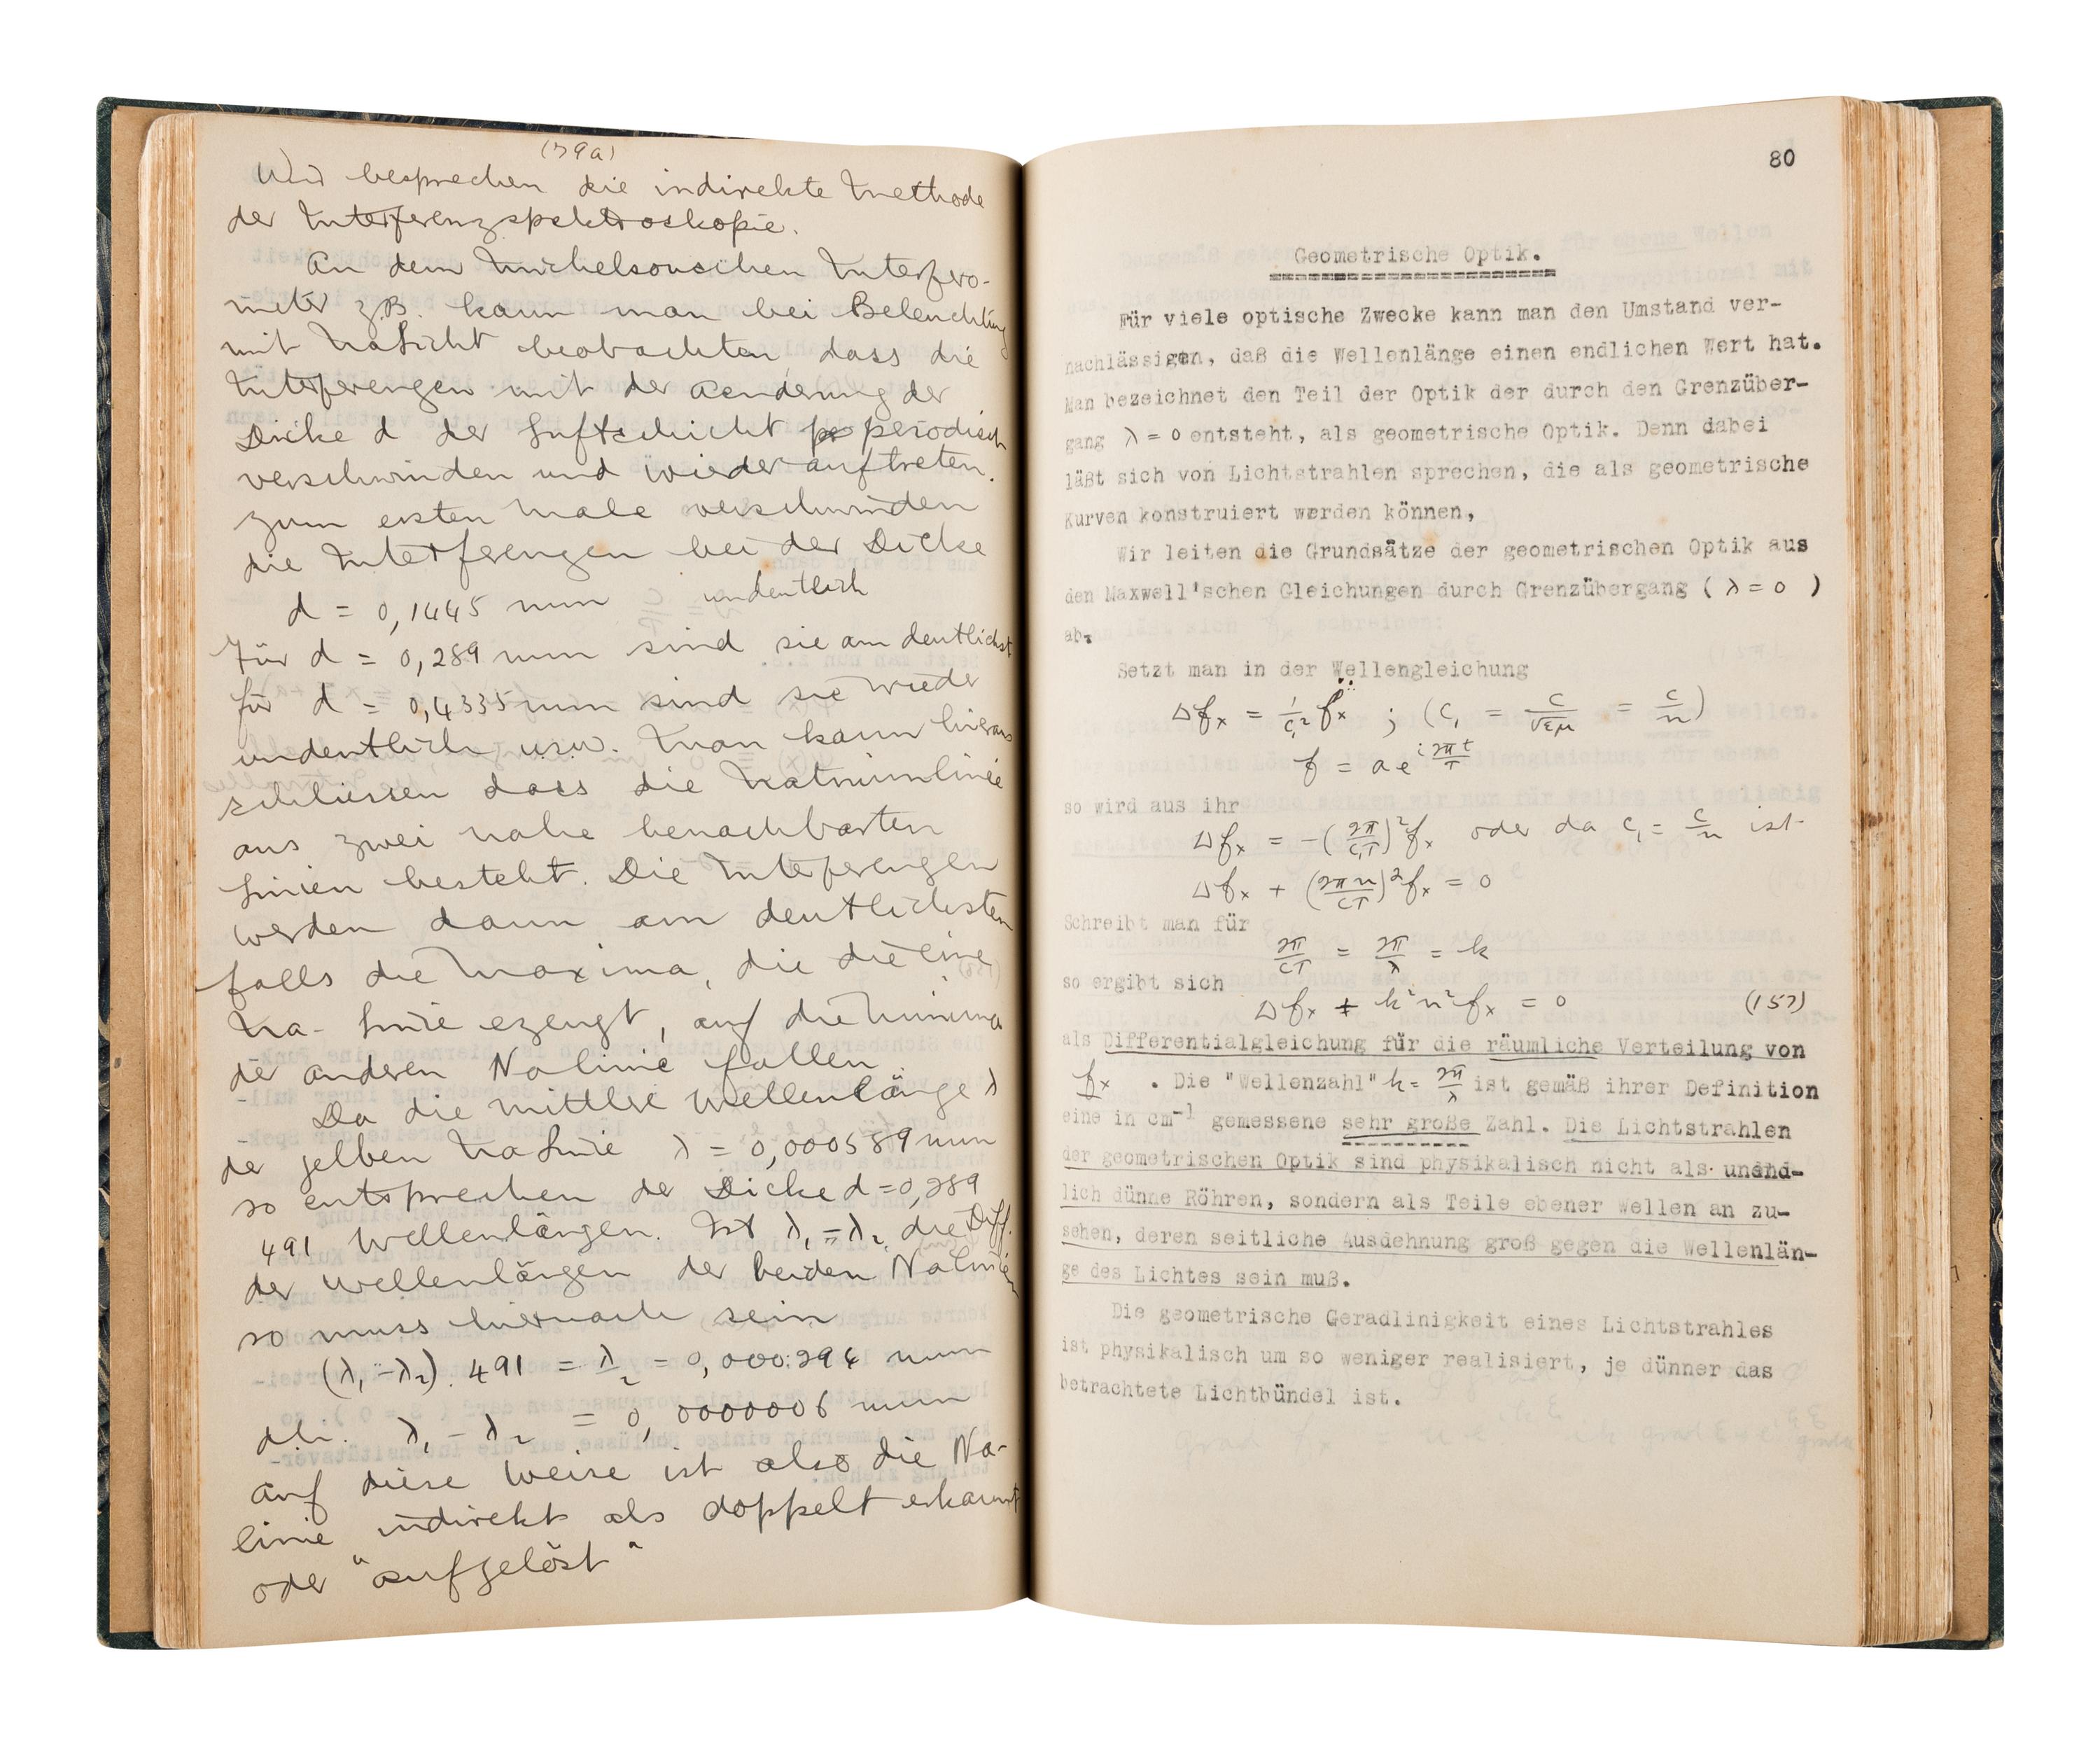 (79a)
Wir besprechen die indirekte Methode
der Interferenzspektroskopie.
An dem Michelsonschen Interfero-
meter z.B. kann man bei Beleuchtung
mit NaLicht beobachten dass die
Interferenzen mit der Aenderung der
Dicke d der Luftschicht periodisch
verschwinden und wieder auftreten.
Zum ersten Male verschwinden
die Interferenzen bei der Dicke
d = 0,1445 mm undeutlich
Für d = 0,289 mm sind sie am deutlichst
für d = 0,4335 mm sind sie wieder
undeutlich usw. Man kann hieraus
schliessen dass die Natriumlinie
aus zwei nahe benachbarten
Linien besteht. Die Interferenzen
werden dann am deutlichsten
falls die Maxima, die die eine
Na-Linie ezeugt, auf die Minima
der anderen Nalinie fallen.
Da die mittlere Wellenlänge λ
der gelben NaLinie λ = 0,000589 mm
so entsprechen der Dicke d = 0,289
491 Wellenlängen. Ist λ₁ = λ₂ die Diff.
der Wellenlängen der beiden Nalinien
so muss hiernach sein
(λ₁ - λ₂) . 491 = λ/2 = 0,000294 mm
d.h. λ₁ - λ₂ = 0,0000006 mm
Auf diese Weise ist also die Na-
linie indirekt als doppelt erkannt
oder "aufgelöst"
80
Geometrische Optik.
Für viele optische Zwecke kann man den Umstand ver-
nachlässigen, daß die Wellenlänge einen endlichen Wert hat.
Man bezeichnet den Teil der Optik der durch den Grenzüber-
gang λ = 0 entsteht, als geometrische Optik. Denn dabei
läßt sich von Lichtstrahlen sprechen, die als geometrische
Kurven konstruiert werden können,
Wir leiten die Grundsätze der geometrischen Optik aus
den Maxwell'schen Gleichungen durch Grenzübergang ( λ = 0 )
ab.
Setzt man in der Wellengleichung
Δfₓ = 1/c₁² f̈ₓ ; (c₁ = c/√εμ = c/n)
f = a e^(i 2πt/T)
so wird aus ihr
Δfₓ = -(2π/c₁T)² fₓ oder da c₁ = c/n ist
Δfₓ + (2πn/cT)² fₓ = 0
Schreibt man für
2π/cT = 2π/λ = k
so ergibt sich
Δfₓ + k²n²fₓ = 0 (157)
als Differentialgleichung für die räumliche Verteilung von
fₓ . Die "Wellenzahl" k = 2π/λ ist gemäß ihrer Definition
eine in cm⁻¹ gemessene sehr große Zahl. Die Lichtstrahlen
der geometrischen Optik sind physikalisch nicht als unend-
lich dünne Röhren, sondern als Teile ebener Wellen an zu-
sehen, deren seitliche Ausdehnung groß gegen die Wellenlän-
ge des Lichtes sein muß.
Die geometrische Geradlinigkeit eines Lichtstrahles
ist physikalisch um so weniger realisiert, je dünner das
betrachtete Lichtbündel ist.